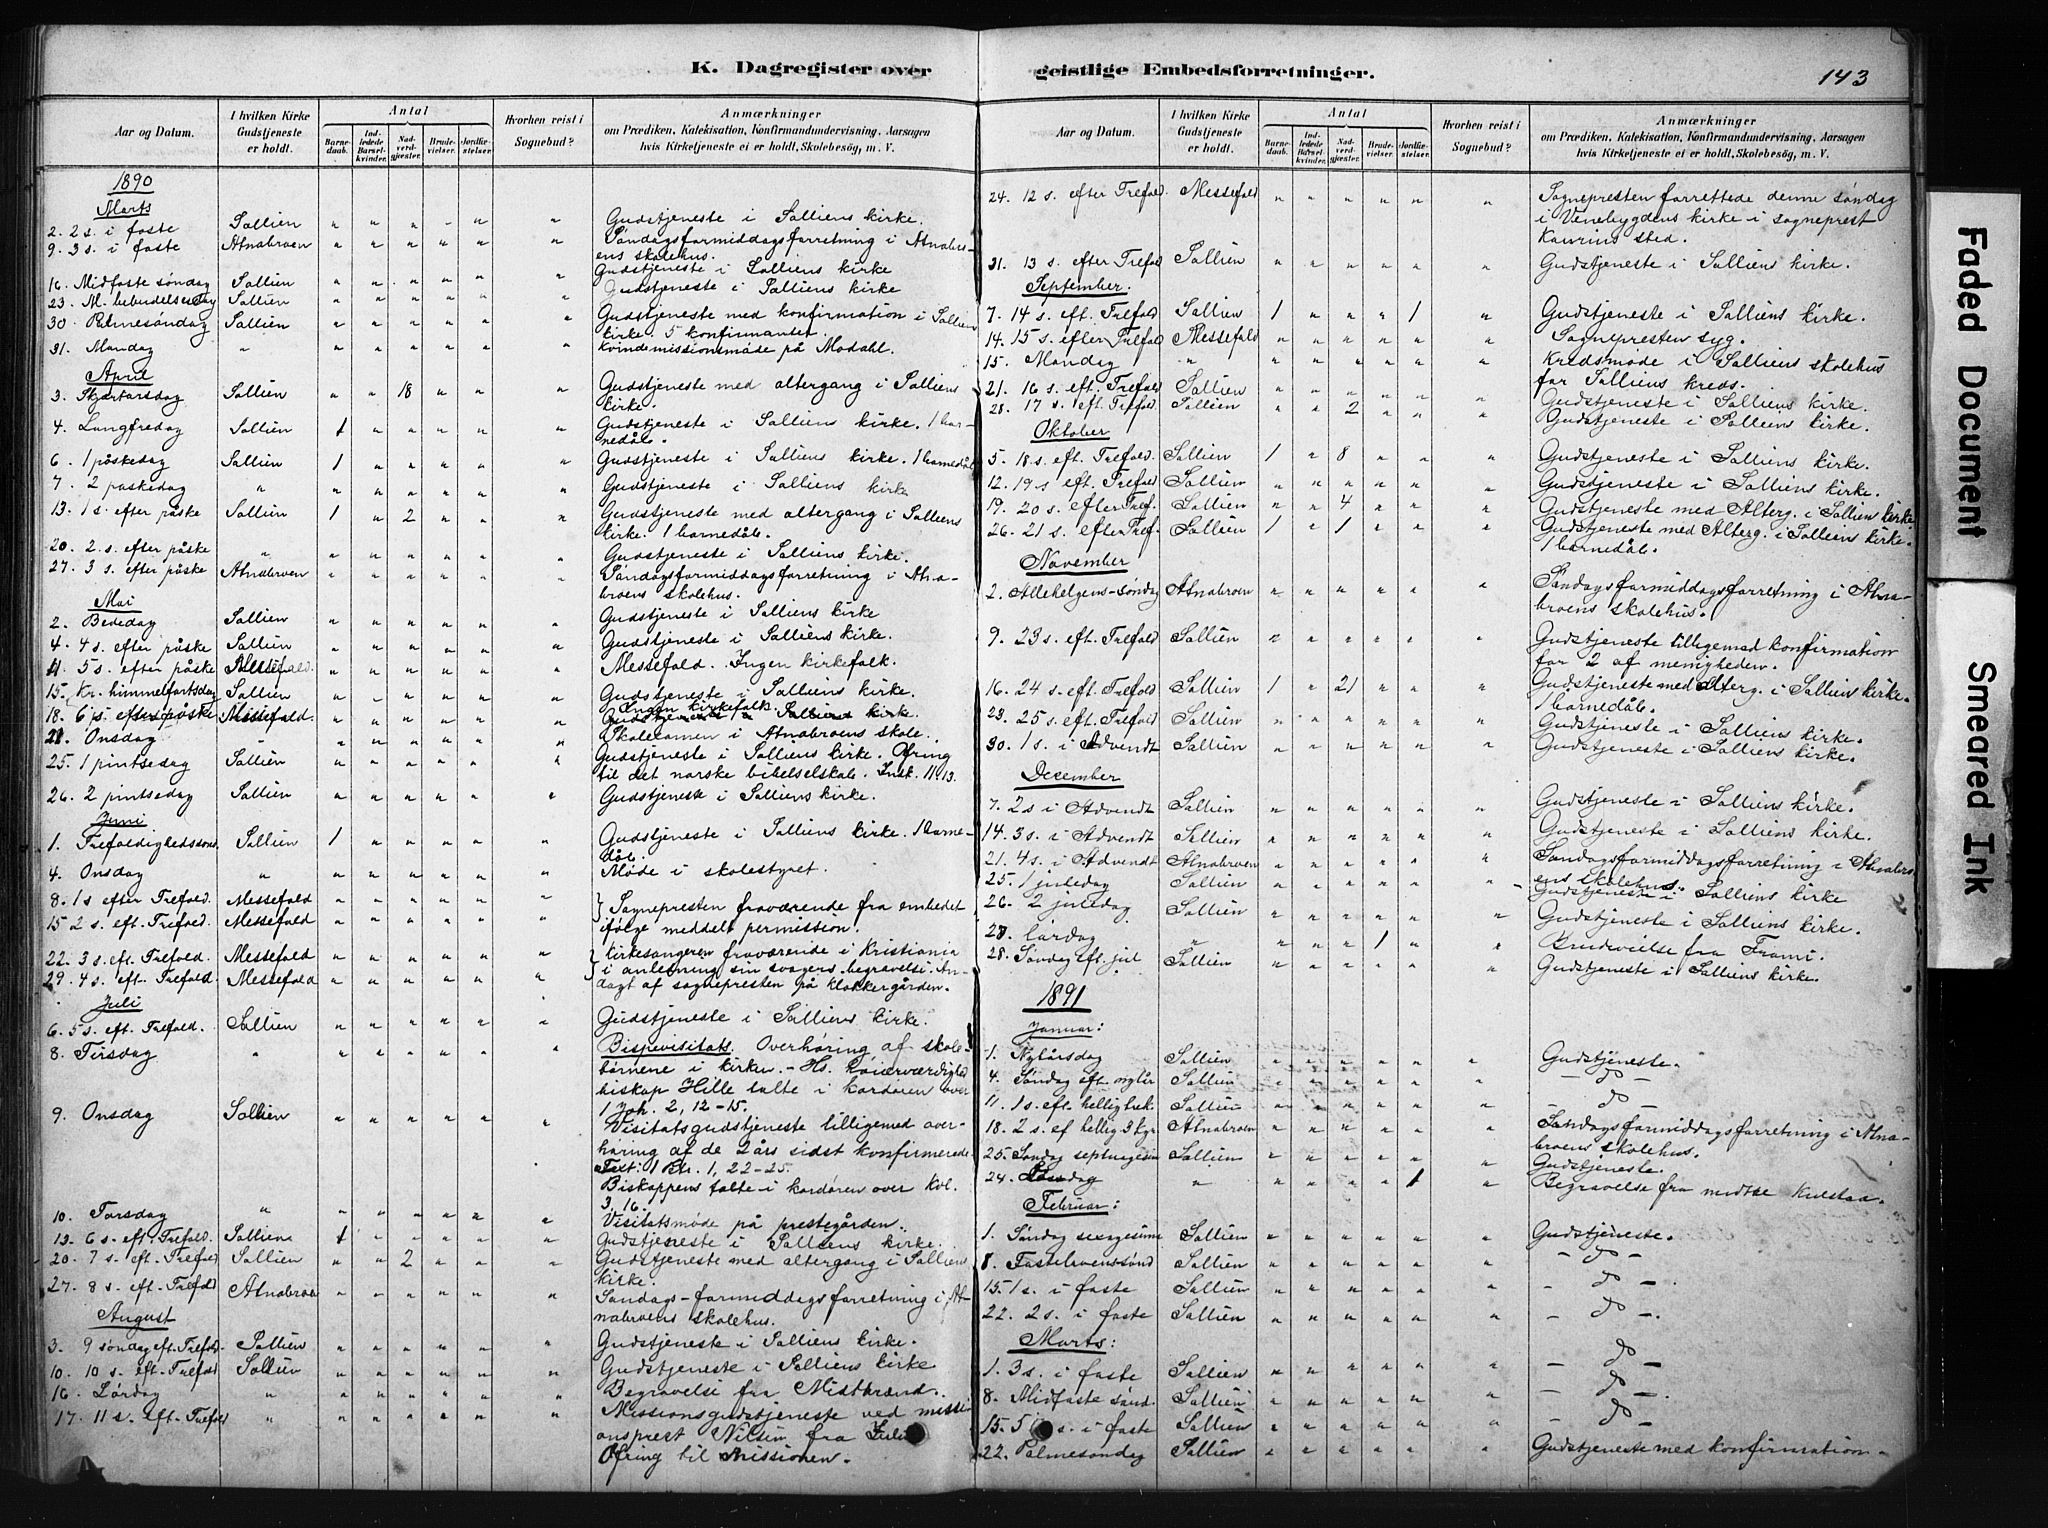 K. Dagregister over geistlige Embedsforretninger.
143
Aar og Datum.
I hvilken Kirke Gudstjeneste er holdt.
Antal
Barnedaab.
Indledede Barselkvinder.
Nadverdgjester.
Brudevielser.
Jordfæstelser.
Hvorhen reist i Sognebud?
Anmærkninger
om Prædiken, Katekisation, Konfirmandundervisning, Aarsagen
hvis Kirketjeneste ei er holdt, Skolebesøg, m. V.
1890
Marts
2. 2 s. i faste Sollien " " " " " " Gudstjeneste i Solliens kirke.
9. 3 s. i faste Atnabroen " " " " " " Søndagsformiddagsforretning i Atnabro-
ens skolehus.
16. Midfaste søndag Sollien " " " " " " Gudstjeneste i Solliens kirke
23. M. bebudelsesdag Sollien " " " " " " Gudstjeneste i Solliens kirke
30. Palmesøndag Sollien " " " " " " Gudstjeneste med konfirmation i Sollien
kirke. 5 konfirmanter.
31. Mandag " " " " " " " Kvindemissionsmøde på Modahl.
April
3. Skjærtorsdag Sollien " " 18 " " " Gudstjeneste med altergang i Solliens
kirke.
4. Langfredag Sollien 1 " " " " " Gudstjeneste i Solliens kirke. 1 bar-
nedåb.
6. 1 påskedag Sollien 1 " " " " " Gudstjeneste i Solliens kirke. 1 barnedåb
7. 2 påskedag " " " " " " " Gudstjeneste i Solliens kirke
13. 1 s. efter påske Sollien 1 " 2 " " " Gudstjeneste med altergang i Solliens
kirke. 1 barnedåb.
20. 2 s. efter påske " " " " " " " Gudstjeneste i Solliens kirke.
27. 3 s. efter påske Atnabroen " " " " " " Søndagsformiddagsforretning i Atna-
broens skolehus.
Mai
2. Bededag Sollien " " " " " " Gudstjeneste i Solliens kirke
4. 4 s. efter påske Sollien " " " " " " Gudstjeneste i Solliens kirke.
11. 5 s. efter påske Messefald. " " " " " " Messefald. Ingen kirkefolk.
15. Kr. himmelfartsdag Sollien " " " " " " Gudstjeneste i Solliens kirke.
18. 6 s. efter påske Messefald. " " " " " " Ingen kirkefolk.
Gudstjeneste i Solliens kirke.
21. Onsdag " " " " " " " Skoleexamen i Atnabroens skole.
25. 1 pintsedag Sollien " " " " " " Gudstjeneste i Solliens kirke. Ofring
til det norske bibelselskab. Insk. 11.13.
26. 2 pintsedag Sollien " " " " " " Gudstjeneste i Solliens kirke.
Juni
1. Trefoldighedssøns. Sollien 1 " " " " " Gudstjeneste i Solliens kirke. 1 barne-
dåb.
4. Onsdag " " " " " " " Møde i skolestyret.
8. 1 s efter Trefold. Messefald " " " " " " Sognepresten fraværende fra embedet
15 2 s. eft. Trefold. Messefald " " " " " " ifølge meddelt permission.
22. 3 s. eft. Trefold. Messefald " " " " " " Kirkesangeren fraværende i Kristiania
29. 4 s. eft. Trefold. Messefald " " " " " " i anledning sin svogers begravelse. An-
dagt af sognepresten på klokkergården.
Juli
6. 5 s. eft. Trefold. Sollien " " " " " " Gudstjeneste i Solliens kirke.
8. Tirsdag " " " " " " " Bispevisitats. Overhøring af skole-
børnene i kirken. - Hs. høiærværdighed
biskop Hille talte i kordøren over
1 Joh. 2, 12-15.
9. Onsdag Sollien " " " " " " Visitatsgudstjeneste tilligemed over-
høring af de 2 års sidst konfirmerede
Text: 1 Kor. 1, 22-25.
Biskoppens talte i kordøren over Kol.
3. 16.
10. Torsdag " " " " " " " Visitatsmøde på prestegården.
13. 6 s. eft. Trefold. Solliens 1 " " " " " Gudstjeneste i Solliens kirke.
20. 7 s. eft. Trefold Sollien " " 2 " " " Gudstjeneste med altergang i Solliens
kirke.
27. 8 s. eft. Trefold Atnabroen " " " " " " Søndags-formiddagsforretning i At-
nabroens skolehus.
August
3. 9 søndag eft. Trefold. Sollien " " " " " " Gudstjeneste i Solliens kirke.
10. 10 s. eft. Trefold Sollien " " " " " " Gudstjeneste i Solliens kirke
16. Lørdag " " " " " " " Begravelse fra Mistbrænd.
17. 11 s. eft. Trefold " " " " " " " Missionsgudstjeneste ved missi-
onsprest Nilsen fra
Ofring til missionen.
24. 12 s. efter Trefold. Messefald " " " " " " Sognepresten forrettede denne søndag
i Venebygdens kirke i sogneprest
Kaurins sted.
31. 13 s. efter Trefold Sollien " " " " " " Gudstjeneste i Solliens kirke.
September.
7. 14 s. eft. Trefold. Sollien 1 " " " 1 " Gudstjeneste i Solliens kirke.
14. 15 s. efter Trefold Messefald " " " " " " Sognepresten syg.
15. Mandag " " " " " " " Kredsmøde i Solliens skolehus
for Solliens kreds.
21. 16 s. eft. Trefold Sollien " " " " " " Gudstjeneste i Solliens kirke.
28. 17 s. eft. Trefold. Sollien " " 2 " " " Gudstjeneste i Solliens kirke.
Oktober
5. 18 s. eft. Trefold. Sollien 1 " 8 " " " Gudstjeneste i Solliens kirke.
12. 19 s eft. Trefold Sollien " " " " " " Gudstjeneste i Solliens kirke.
19. 20 s. efter Tref. Sollien " " 4 " " " Gudstjeneste med Alterg. i Sollien kirke
26. 21 s. efter Tref. Sollien 1 " 1 " " " Gudstjeneste med Alterg. i Sollien kirke.
1 barnedåb.
November
2. Allehelgens-søndag Atnabroen " " " " " " Søndagsformiddagsforretning i Atna-
broens skolehus.
9. 23 s. eft. Trefold Sollien " " " " " " Gudstjeneste tilligemed konfirmation
for 2 af menigheden.
16. 24 s. eft. Trefold Sollien 1 " 21 " " " Gudstjeneste med Alterg. i Sollien kirke.
1 barnedåb.
23. 25 s. eft. Trefold. Sollien " " " " " " Gudstjeneste i Solliens kirke.
30. 1 s. i Advendt Sollien " " " " " " Gudstjeneste i Solliens kirke.
December
7. 2 s i Advendt Sollien " " " " " " Gudstjeneste i Solliens kirke.
14. 3 s. i Advendt Sollien " " " " " " Gudstjeneste i Solliens kirke.
21. 4 s. i Advendt Atnabroen " " " " " " Søndagsformiddagsforretning i Atnabro-
ens skolehus.
25. 1 juledag Sollien " " " " " " Gudstjeneste i Solliens kirke
26. 2 juledag Sollien " " " " " " Gudstjeneste i Solliens kirke.
27. Lørdag " " " " 1 " " Brudevielse fra Frami.
28. Søndag eft. jul Sollien " " " " " " Gudstjeneste i Solliens kirke.
1891
Januar:
1. Nytårsdag Sollien " " " " " " Gudstjeneste.
4. Søndag eft. nytår Sollien " " " " " " - do -
11. 1 s. eft. hellig trek. Sollien " " " " " " - do -
18. 2 s. ef hellig 3 kgr Atnabroen " " " " " " Søndagsformiddagsforretning i Atna-
broens skolehus.
25. Søndag septuagesim Sollien " " " " " " Gudstjeneste.
24. Lørdag " " " " " 1 " Begravelse fra midtse Kulstad.
Februar:
1. Søndag sexagesima Sollien " " " " " " Gudstjeneste.
8. Fastelavenssønd Sollien " " " " " " - do -
15. 1 s. i faste Sollien " " " " " " - do -
22. 2 s. i faste Sollien " " " " " " - do -
Marts:
1. 3 s. i faste Sollien " " " " " " - do -
8. Midfaste sønd. Sollien " " " " " " - do -
15. 5 s. i faste Sollien " " " " " " - do -
22. Palmesøndag Sollien " " " " " " Gudstjeneste med konfirmation.
Faded Document
Smeared Ink